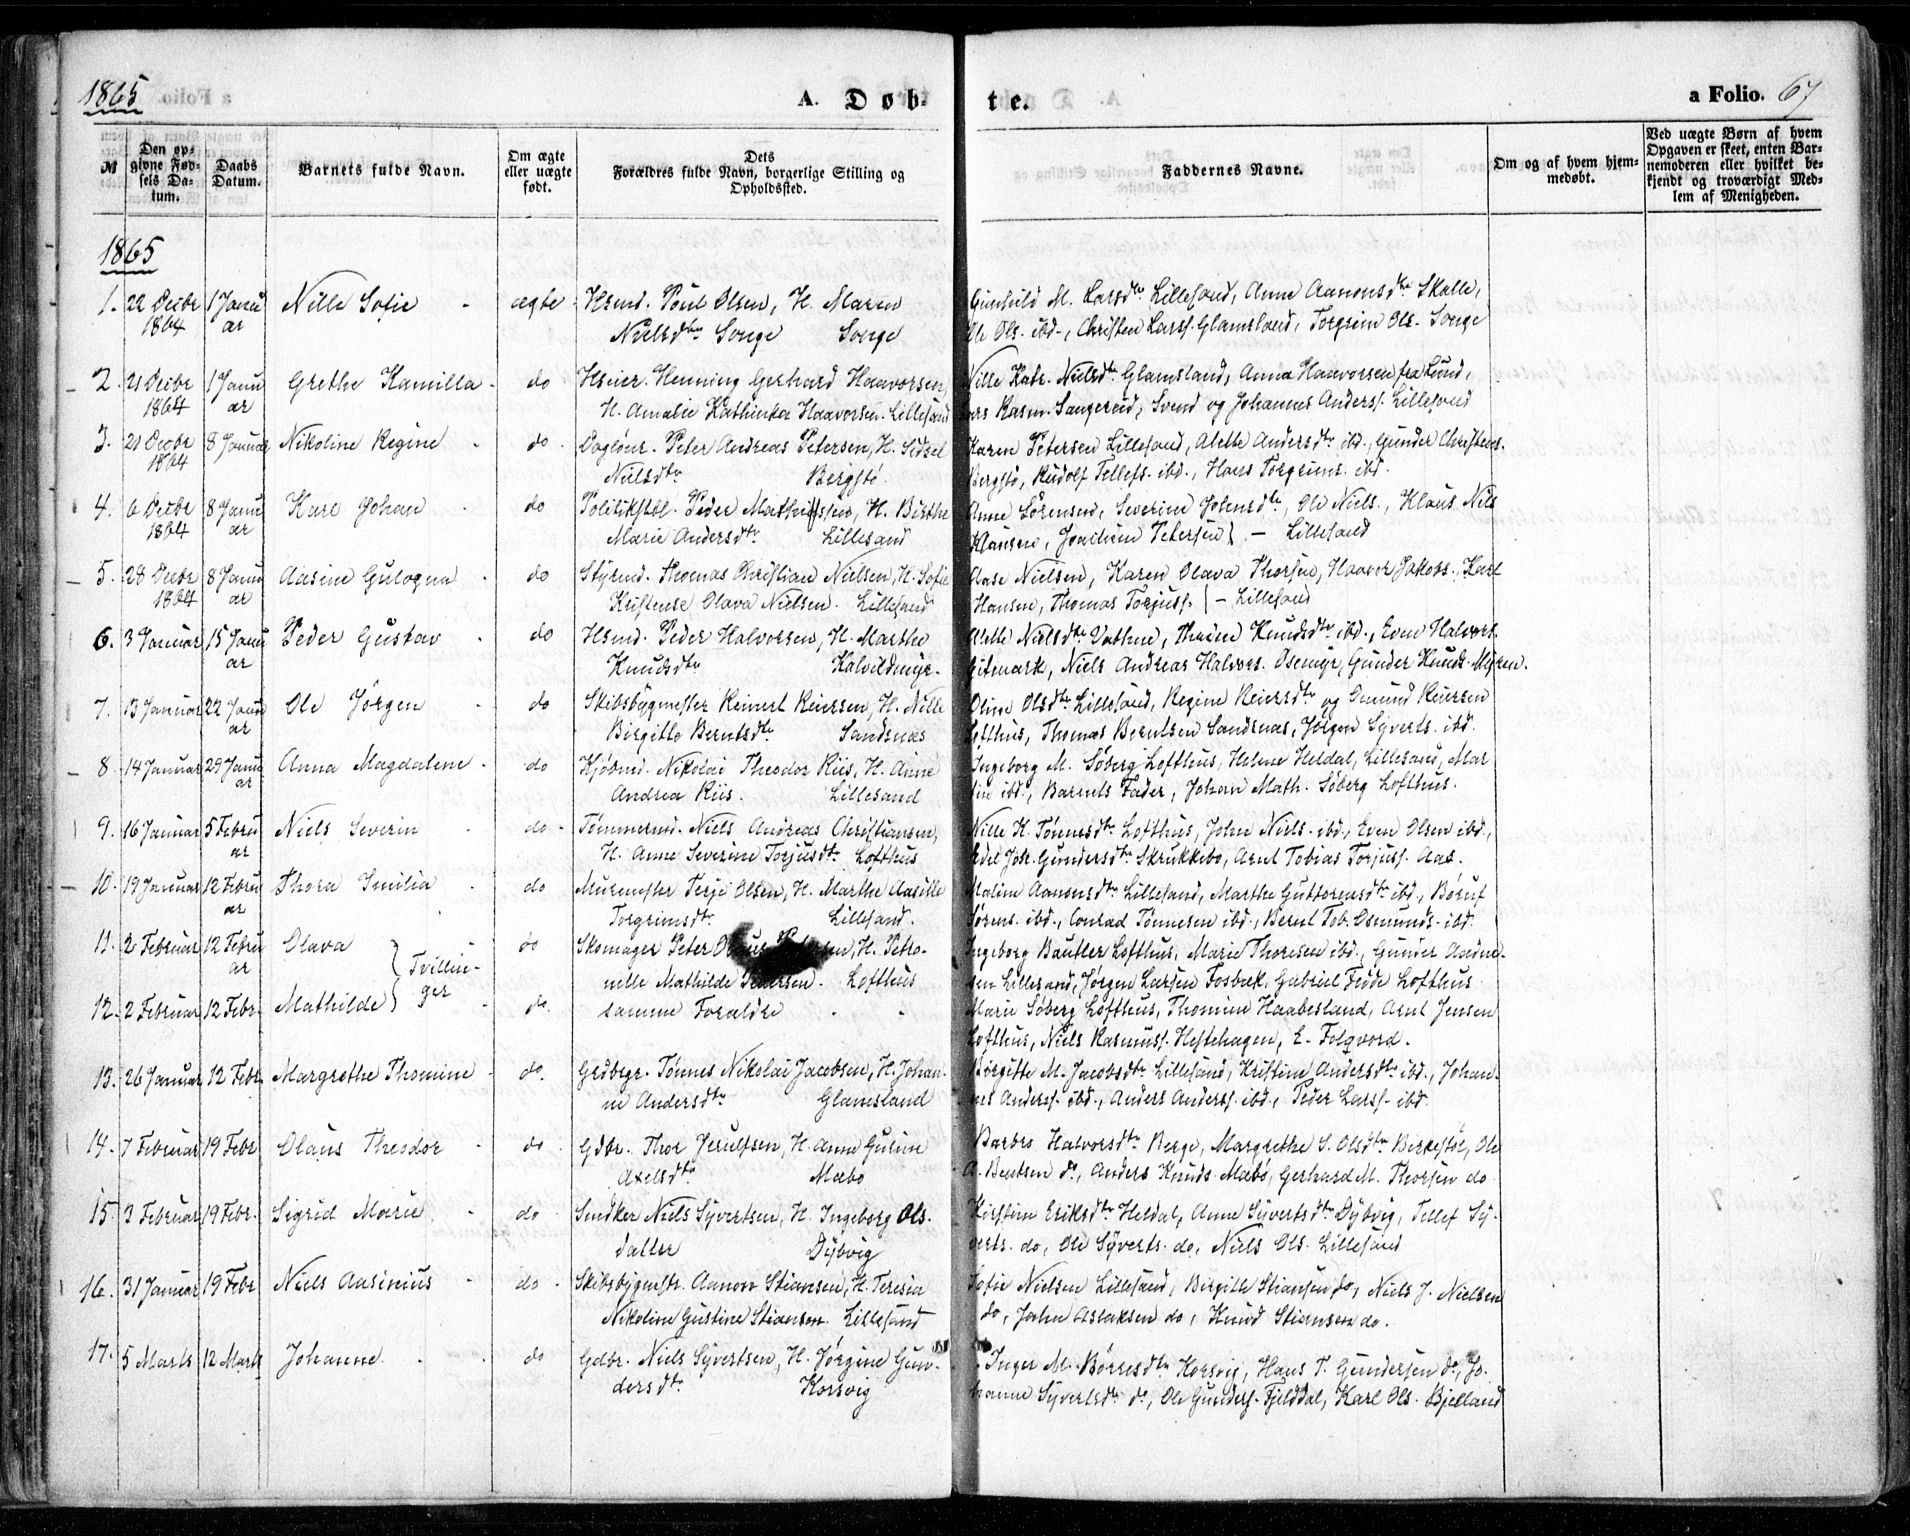 1865
A. Døb-
te.
a Folio. 67
№
Den opgivne Fødsels Datum.
Daabs Datum.
Barnets fulde Navn.
Om ægte eller uægte født.
Dets Forældres fulde Navn, borgerlige Stilling og Opholdssted.
Faddernes Navne.
Om og af hvem hjemmedøbt.
Ved uægte Børn af hvem Opgaven er skeet, enten Barnemoderen eller hvilket bekjendt og troværdigt Medlem af Menigheden.
1865
1. 22 Decbr 1 Janu Nille Sofie - ægte Hsmd. Poul Olsen, H. Maren Gunhild M. Larsdtr Lillesand, Anne Aanonsdtr Skalle,
1864 ar Nielsdtr Songe Songe Ole Ols. ibd., Christen Larss. Glamsland, Torgrim Ols. Songe
2. 21 Decbr 1 Janu Grethe Kamilla - do Hseier. Henning Gerhard Haavorsen, Nille Katr. Nielsdtr Glamsland, Anna Haavorsen fra Lund,
1864 ar H. Amalie Kathinka Haavorsen. Lillesand Lars Rasm. Sangereid, Svend og Johannes Anderss. Lillesand
3. 21 Decbr 8 Januar Nikoline Regine - do Daglønr. Peter Andreas Petersen, H. Sidsel Karen Petersen Lillesand, Alette Andersdtr ibd., Gunder Christens.
1864 Nielsdtr Bergstø. Bergstø, Rudolf Tellefs. ibd., Hans Torgrims. ibd.
4. 6 Decbr 8 Janu Karl Johan - do Politikstbl. Peder Mathissen, H. Birthe Anne Sørensen, Severine Johnsdtr, Ole Niels., Klaus Nils
1864 ar Marie Andersdtr Lillesand Klausen, Joachim Petersen } - Lillesand
5. 28 Decbr 8 Janu Aasine Gulogna - do Styrmd. Thomas Christian Nielsen, H. Sofie Aase Nielsen, Karen Olava Thorsen, Haavor Jakobs., Karl
1864 ar Kristense Olava Nielsen. Lillesand Hansen, Thomas Torjuss. } - Lillesand
6. 3 Januar 15 Janu Peder Gustav - do Hsmd. Peder Halvorsen, H. Marthe Alette Nielsdtr Vathne, Thrine Knudsdtr ibd., Even Halvors.
ar Knudsdtr Kalvildmyr. Gitmark, Niels Andreas Halvors. Osemyr, Gunder Knuds. Myren.
7. 13 Januar 22 Janu Ole Jørgen - do Skibsbygmester Reinert Reiersen, H. Nille Oline Olsdtr Lillesand, Regine Reiersdtr og Omund Reiersen
ar Birgitte Berntsdtr Sandsnæs Lofthus, Thomas Berntsen Sandsnæs, Jørgen Syverts. ibd.
8. 14 Januar 29 Janu Anna Magdalene - do Kjøbmd. Nikolai Theodor Riis, H. Anne Ingeborg M. Søberg Lofthus, Helene Heldal, Lillesand, Mar
ar Andrea Riis. Lillesand tin ibd., Barnets Fader, Johan Math. Søberg Lofthus.
9. 16 Januar 5 Febru Niels Severin - do - Tømmermd. Niels Andreas Christiansen, Nille K. Tønnesdtr Lofthus, John Niels. ibd., Even Olsen ibd.,
ar H. Anne Severine Torjusdtr Lofthus Edel Joh. Gundersdtr Skrukkebo, Arnt Tobias Torjuss. Aas.
10. 19 Januar 12 Febru Thora Emilia - do Murmester Terje Olsen, H. Marthe Aasille Maline Aanensdtr Lillesand, Marthe Guttormsdtr ibd., Børut
ar Torgrimsdtr Lillesand. Sørens. ibd., Conrad Tønnesen ibd., Bernt Tob. Osmunds. ibd.
11. 2 Februar 12 Febru Olava } Tvillin- do Skomager Peter Petersen, H. Petro- Ingeborg Bautler Lofthus, Marie Thorsen ibd., Gunder Aadne-
ar ger nelle Mathilde Petersen. Lofthus sen Lillesand, Jørgen Larsen Fosbæk, Gabriel Fedde Lofthus
12. 2 Februar 12 Febr. Mathilde - do. samme Forældre - - Marie Søberg Lofthus, Thomine Haabesland, Arnt Jensen
Lofthus, Niels Rasmuss. Hestehagen, E. Folqvord.
13. 26 Januar 12 Febr. Margrethe Thomine - do. Grdbrgr. Tønnes Nikolai Jacobsen, H. Johan- Birgitte M. Jacobsdtr Lillesand, Kristine Andersdtr ibd., Johan-
ne Andersdtr Glamsland nes Anderss. ibd., Anders Anderss. ibd., Peder Larss. ibd.
14. 7 Februar 19 Febr Olaus Theodor - do Gdbr. Thor Jerulfsen, H. Anne Gurine Barbro Halvorsdtr Berge, Margrethe S. Olsdtr Birkestøl, Ole
Axelsdtr Mæbø A. Bentsen do, Anders Knuds. Mæbø, Gerhard M. Thorsen do
15. 3 Februar 19 Febr. Sigrid Marie - do Snedker Niels Syvertsen, H. Ingeborg Ols. Kirstine Eriksdtr Heldal, Anne Syvertsdtr Dybvig, Tellef Sy-
datter Dybvig verts. do, Ole Syverts. do, Niels Ols. Lillesand
16. 31 Januar 19 Febr Niels Aasinius - do - Skibsbygmstr. Aanon Stiansen, H. Teresia Sofie Nielsen Lillesand, Birgitte Stiansen do, Niels J. Nielsen
Nikoline Gustine Stiansen. Lillesand do, John Aslaksen do, Knud Stiansen do.
17. 5 Marts 12 Marts Johanne. - - do Gdbr. Niels Syvertsen, H. Jørgine Gun- Inger M. Børresdtr Korsvig, Hans T. Gundersen do, Jo-
dersdtr Korsvig hanne Syvertsdtr do, Ole Gunders. Fjelddal, Karl Ols. Bjelland